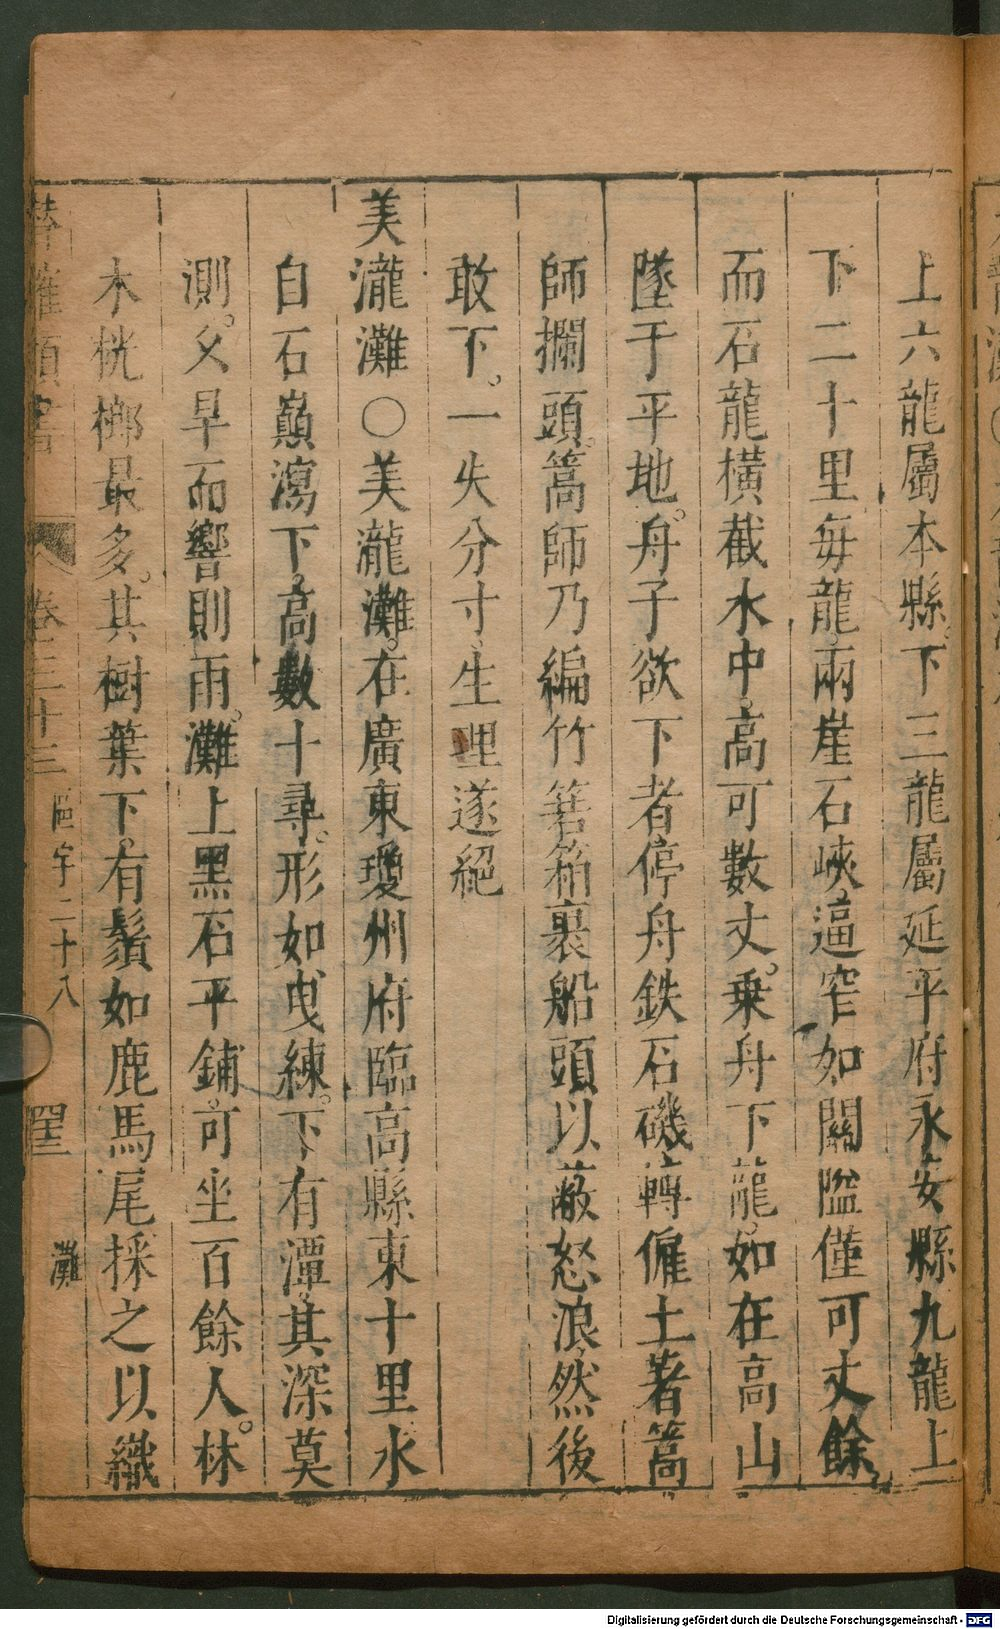 上六龍屬本縣下三龍屬延平府永安縣九龍上
下二十里每龍兩崖石峽逼窄如關隘僅可丈餘
而石龍橫截水中高可數丈。乗舟下龍如在高山
墜于平地。舟子欲下者停舟鉄石磯轉僱土著篙
師攔頭。篙師乃編竹箬箱裹船頭以蔽怒浪然後
敢下。一失分寸生理遂絕
美瀧灘〇美瀧灘。在廣東瓊州府臨高縣東十里水
自石巔瀉下。高數十尋。形如曳練。下有潭其深莫
測。父早而響則雨。灘上黑石平鋪。可坐百餘人。林
木桄榔最多。其樹葉下有鬚如鹿馬尾採之以織
卷三十三 區宇二十八 灘
Digitalisierung gefördert durch die Deutsche Forschungsgemeinschaft - DFG